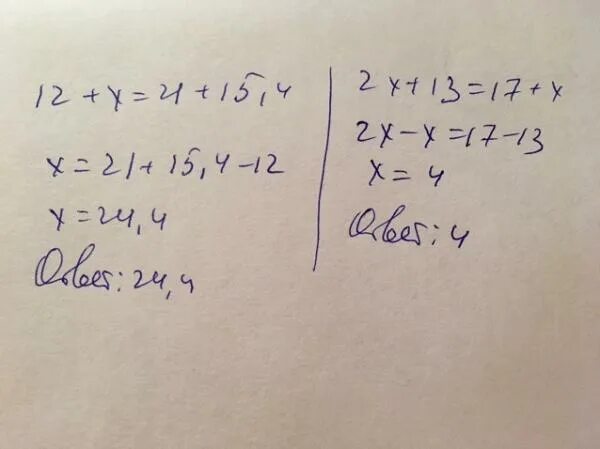 12 + x = 21 + 15,4
x = 21 + 15,4 - 12
x = 24,4
Ответ: 24,4
2x + 13 = 17 + x
2x - x = 17 - 13
x = 4
Ответ: 4